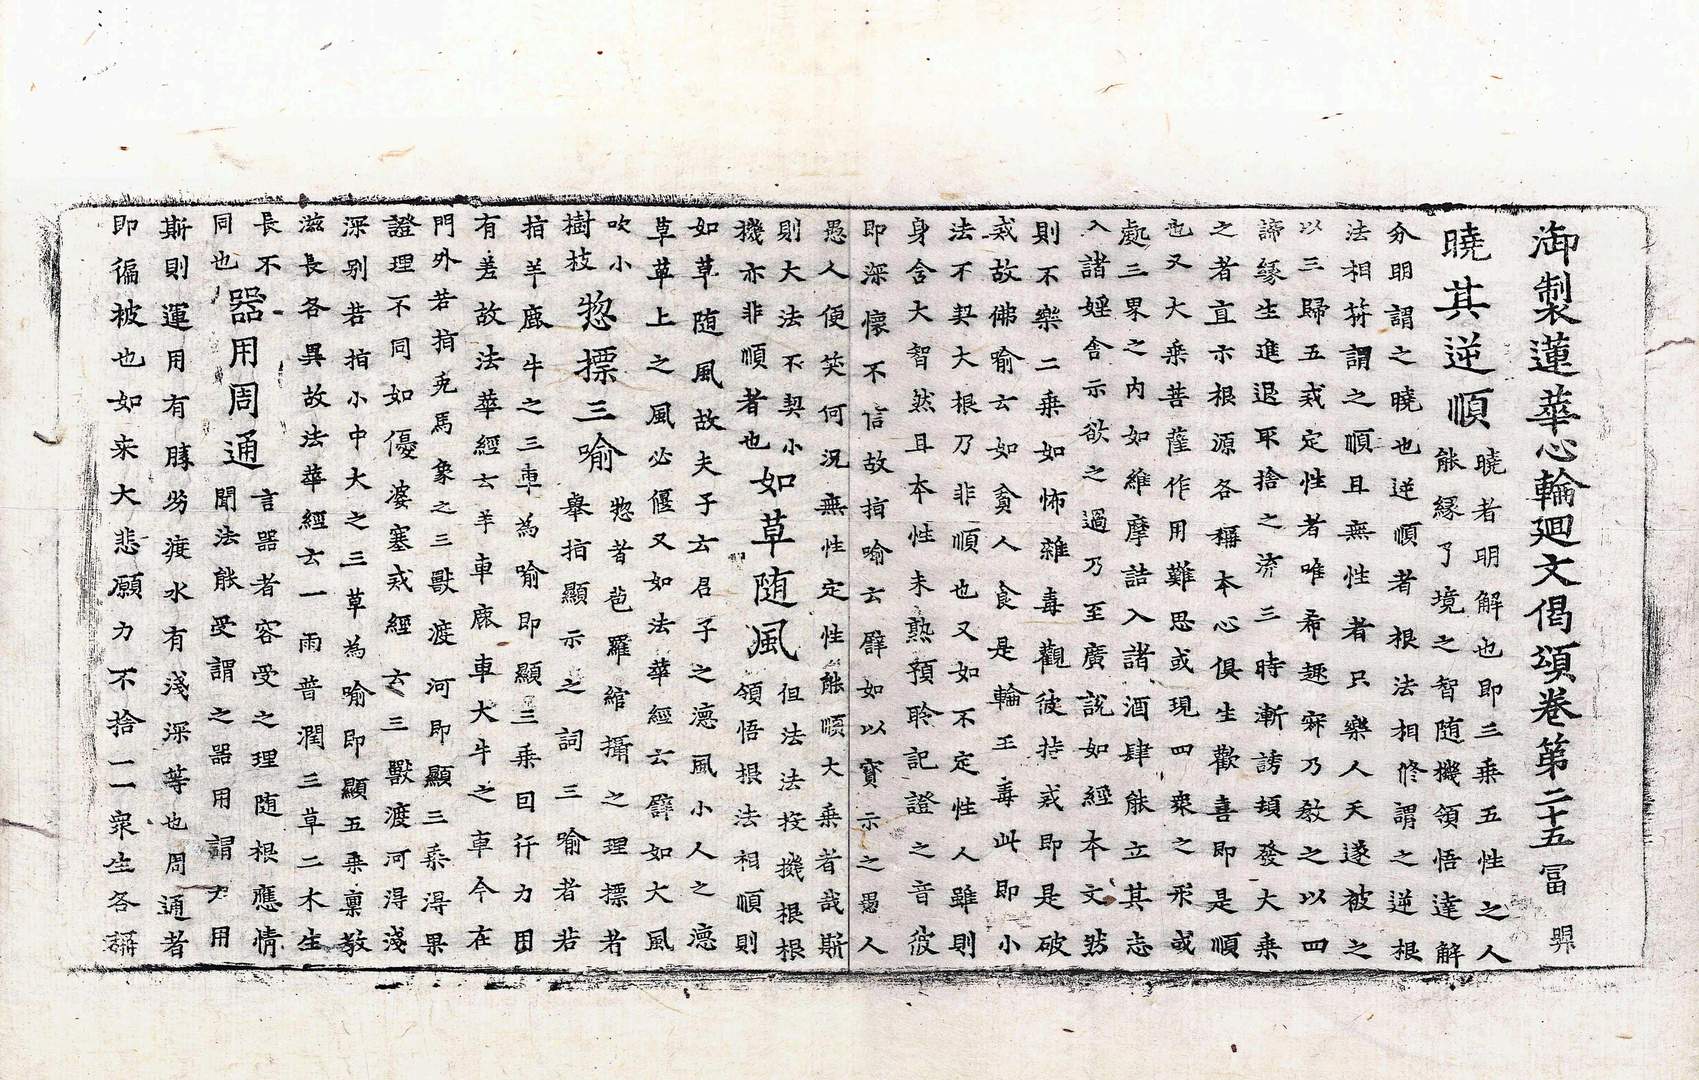 御製蓮華心輪廻文偈頌卷第二十五 冨 㒹
曉其逆順 曉者明解也即三乗五性之人
能縁了境之智随機領悟達解
分明謂之曉也逆順者根法相俻謂之逆根
法相符謂之順且無性者只樂人天遂被之
以三歸五戒定性者唯希趣寂乃教之以四
諦縁生進退取捨之流三時漸誘頓發大乗
之者直示根源各稱本心俱生歡喜即是順
也又大乗菩薩作用難思或現四衆之形或
處三界之内如維摩詰入諸酒肆能立其志
入諸婬舍示欲之過乃至廣說如經本文然
則不樂二乗如怖雜毒觀彼持戒即是破
戒故佛喻云如貪人食是輪王毒此即小
法不契大根乃非順也又如不定性人雖則
身含大智然且本性未熟預聆記證之音彼
即深懷不信故指喻云譬如以寳示之愚人
愚人便笑何況無性定性能順大乗者哉斯
則大法不契小
機亦非順者也 如草随風 但法法投機根根
領悟根法相順則
如草随風故夫子云君子之德風小人之德
草草上之風必偃又如法華經云譬如大風
吹小
樹枝 惣摽三喻 惣者苞羅綰攝之理摽者
舉指顯示之詞三喻者若
指羊鹿牛之三車為喻即顯三乗囙行力用
有差故法華經云羊車鹿車大牛之車今在
門外若指兎馬象之三獸渡河即顯三乗得果
證理不同如優婆塞戒經云三獸渡河得淺
深别若指小中大之三草為喻即顯五乗禀教
滋長各異故法華經云一雨普潤三草二木生
長不
同也 器用周通 言器者容受之理随根應情
聞法能受謂之器用謂力用
斯則運用有勝劣渡水有淺深等也周通者
即徧被也如来大悲願力不捨一一衆生各稱